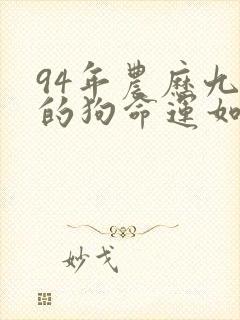 94年農歷九
的狗命運如
妙戈